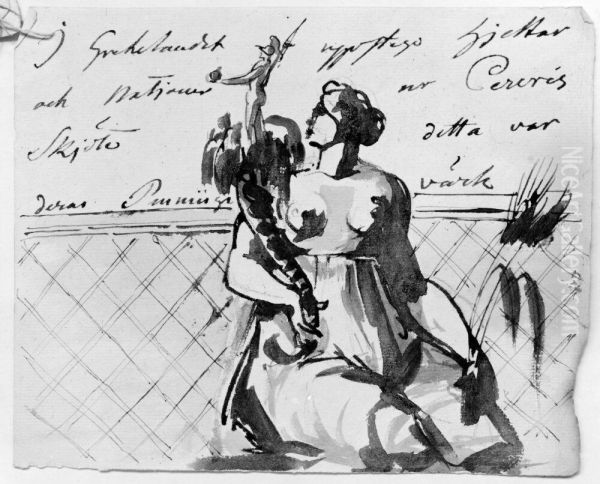 I Grekelandet uppstego hjeltar
och Nationer ur Cereris
Sköte ditta var
deras värk